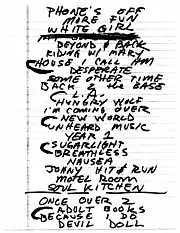 PHONE'S OFF
MORE FUN
WHITE GIRL
BEYOND & BACK
RIDING W/ MARY
HOUSE I CALL HOME
DESPERATE
SOME OTHER TIME
BACK 2 THE BASE
L.A.
HUNGRY WOLF
I'M COMING OVER
NEW WORLD
UNHEARD MUSIC
YEAR 1
SUGARLIGHT
BREATHLESS
NAUSEA
JOHNY HIT & RUN
MOTEL ROOM
SOUL KITCHEN
ONCE OVER 2
ADULT BOOKS
BECAUSE I DO
DEVIL DOLL